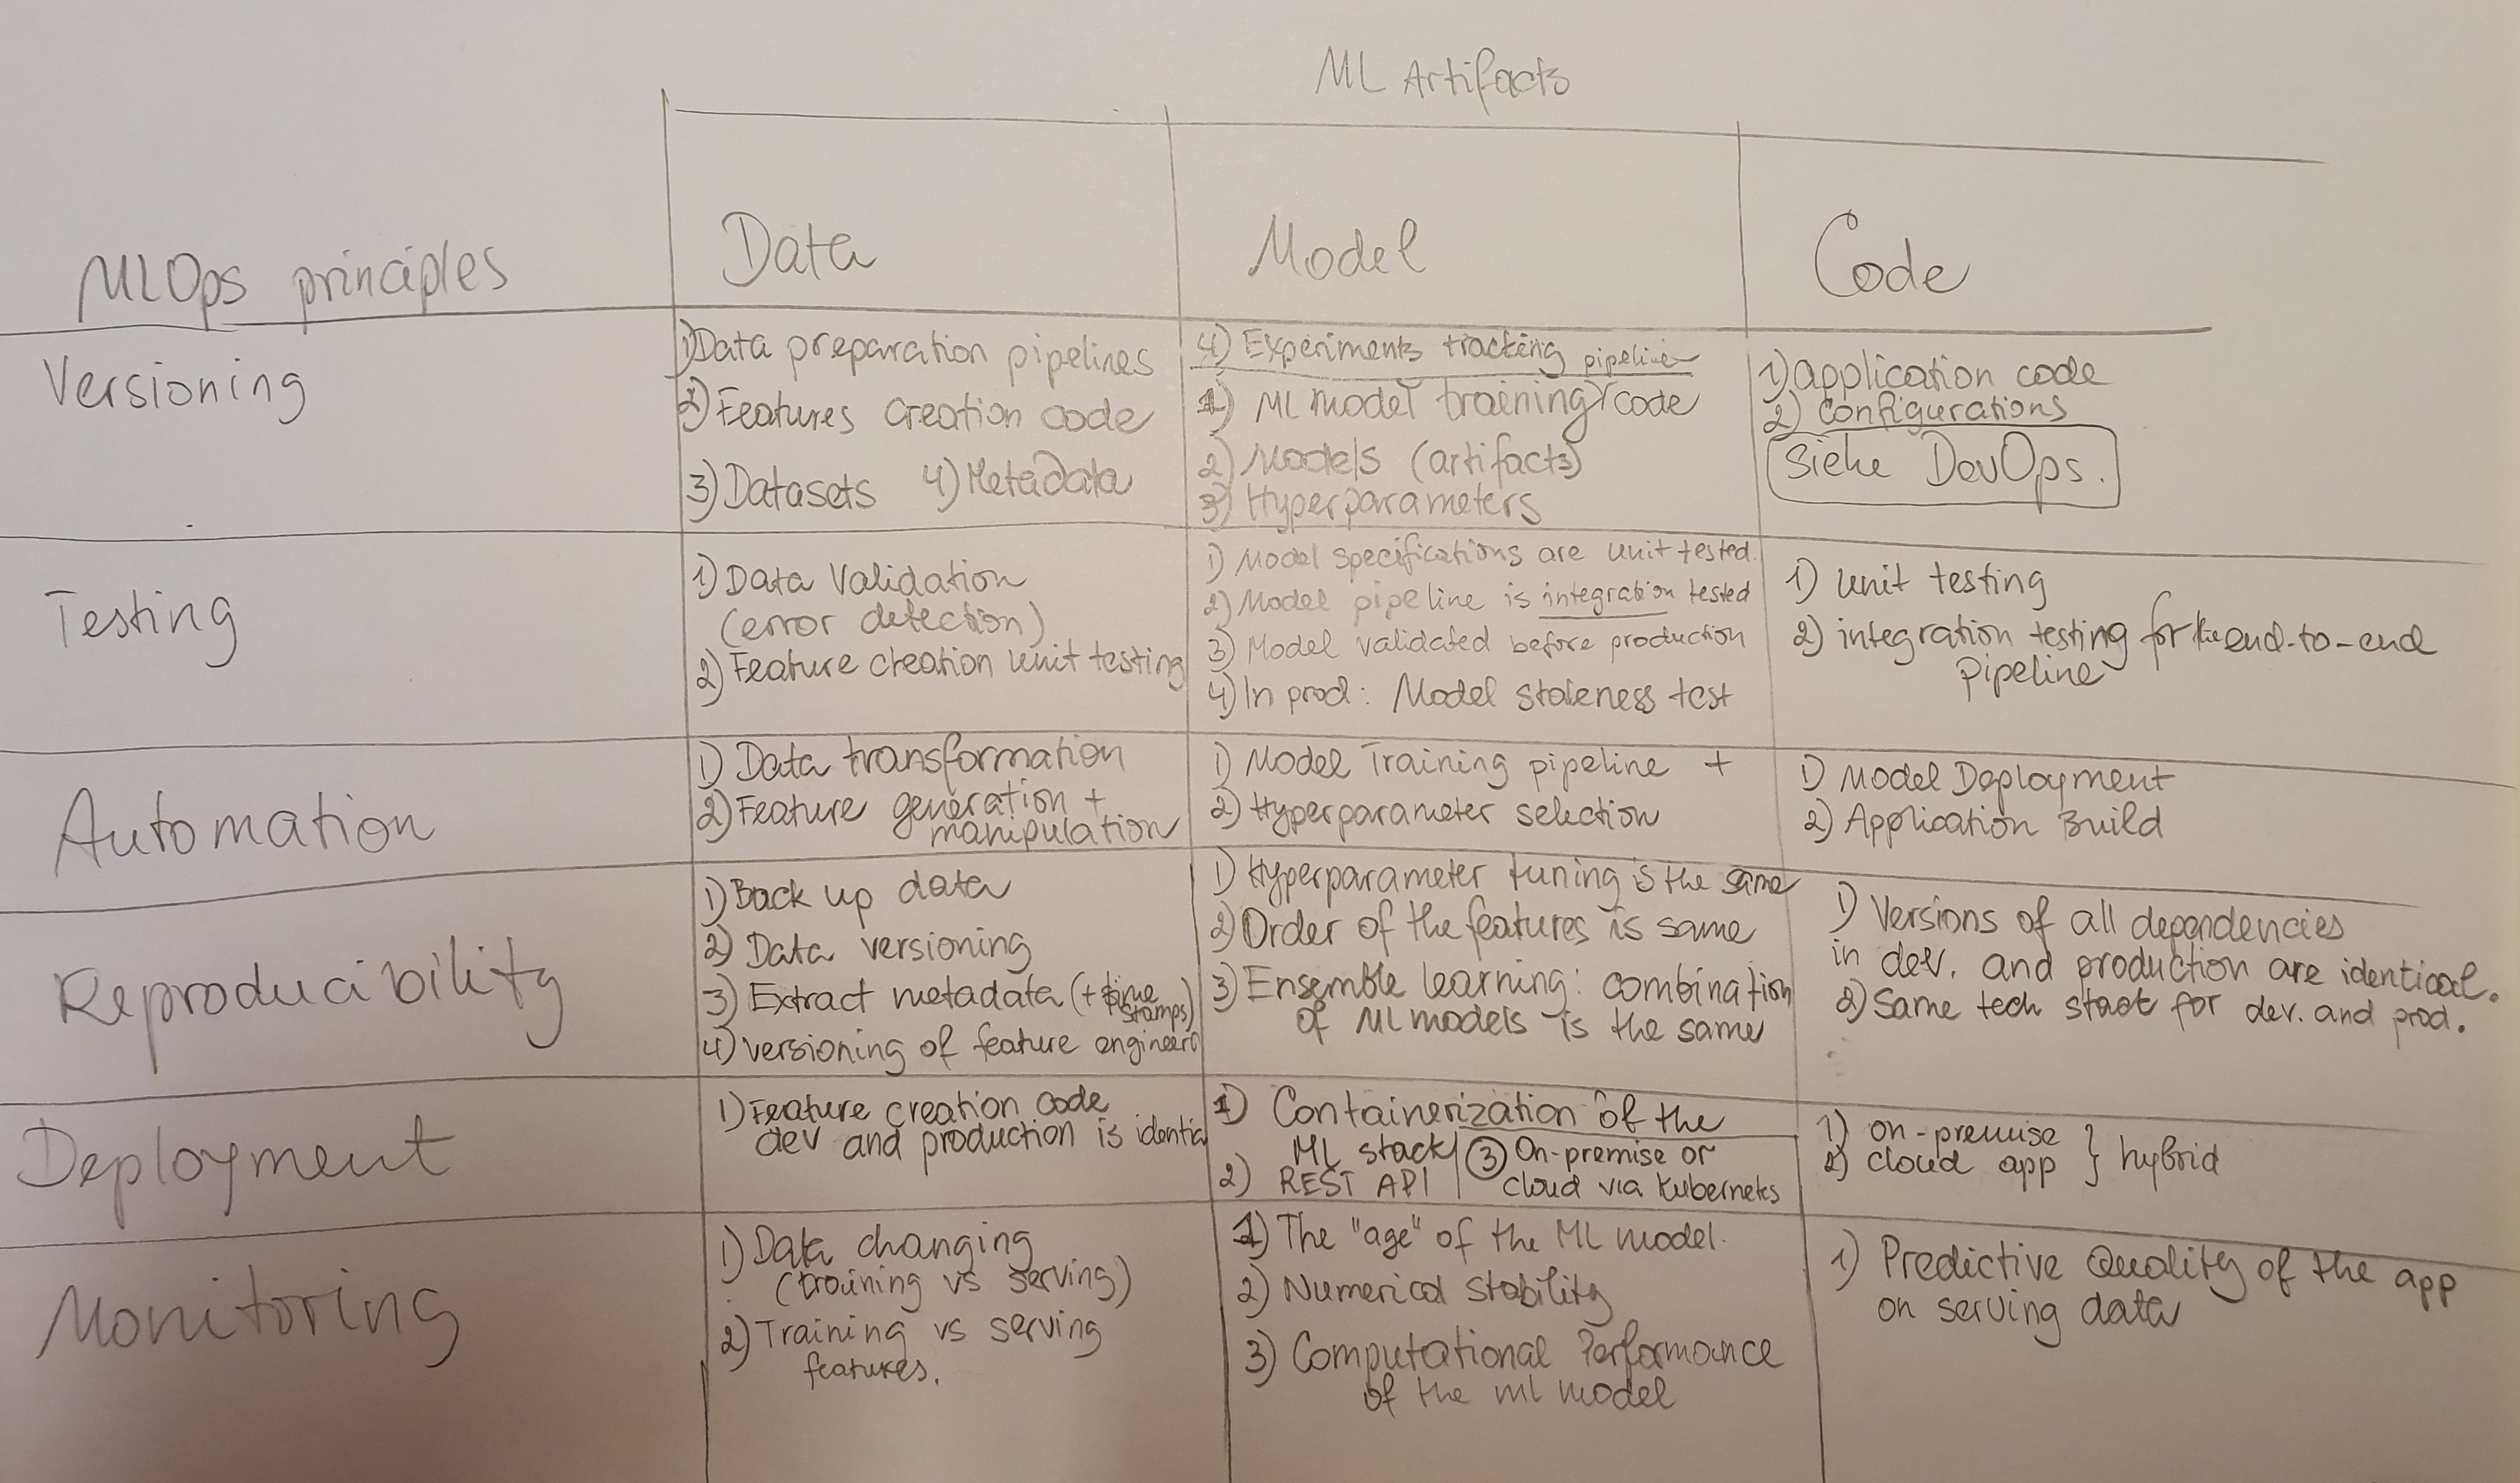 ML Artifacts
MLOps principles
Data
Model
Code
Versioning
1) Data preparation pipelines
2) Features creation code
3) Datasets 4) Metadata
4) Experiments tracking pipeline
1) ML model training code
2) Models (artifacts)
3) Hyperparameters
1) application code
2) configurations
Siehe DevOps.
Testing
1) Data Validation
(error detection)
2) Feature creation unit testing
1) Model specifications are unit tested.
2) Model pipeline is integration tested
3) Model validated before production
4) In prod: Model staleness test
1) unit testing
2) integration testing for the end-to-end
pipeline
Automation
1) Data transformation
2) Feature generation +
manipulation
1) Model Training pipeline +
2) Hyperparameter selection
1) Model Deployment
2) Application Build
Reproducibility
1) Back up data
2) Data versioning
3) Extract metadata (+ time
stamps)
4) versioning of feature engineer
1) Hyperparameter tuning is the same
2) Order of the features is same
3) Ensemble learning: combination
of ML models is the same
1) Versions of all dependencies
in dev. and production are identical.
2) Same tech stack for dev. and prod.
Deployment
1) Feature creation code
dev and production is identica
1) Containerization of the
ML stack
2) REST API
3 On-premise or
cloud via Kubernetes
1) on-premise
2) cloud app } hybrid
Monitoring
1) Data changing
(training vs serving)
2) Training vs serving
features.
1) The "age" of the ML model.
2) Numerical stability
3) Computational Performance
of the ml model
1) Predictive Quality of the app
on serving data